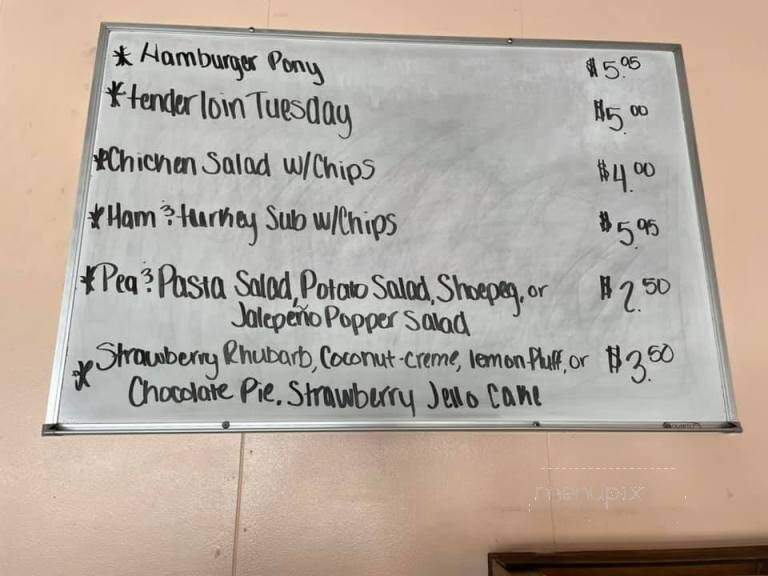 * Hamburger Pony $5.95
* tenderloin Tuesday $5.00
* Chicken Salad w/Chips $4.00
* Ham & turkey Sub w/Chips $5.95
* Pea & Pasta Salad, Potato Salad, Shoepeg, or $2.50
Jalepeño Popper Salad
* Strawberry Rhubarb, Coconut-creme, lemon fluff, or $3.50
Chocolate Pie. Strawberry Jello Cake
menupix